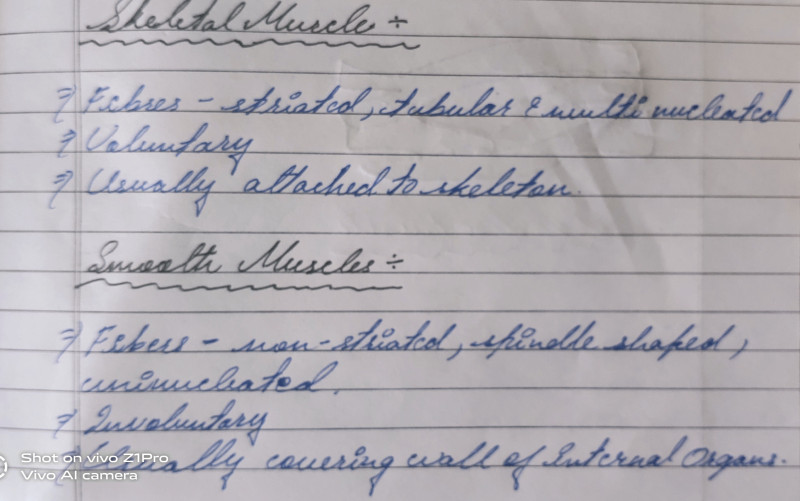 Skeletal Muscle ÷
⇒ Fibres - striated, tubular & multi nucleated
⇒ Voluntary
⇒ Usually attached to skeleton.
Smooth Muscles ÷
⇒ Fibers - non-striated, spindle shaped,
uninucleated.
⇒ Involuntary
Usually covering wall of Internal Organs.
Shot on vivo Z1Pro
Vivo AI camera